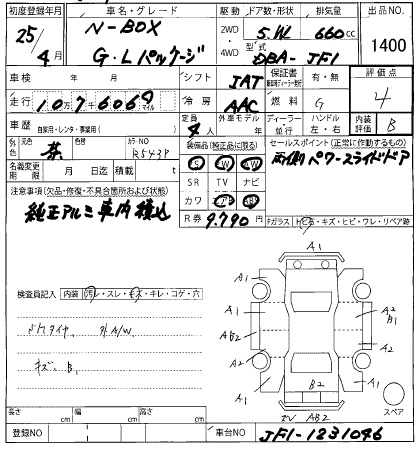 初度登録年月 車名・グレード 駆動 ドア数・形状 排気量 出品NO
25/4月 N-BOX G・Lパッケージ 2WD 4WD 5.W 660cc 型式 DBA-JF1 1400
車検 年 月 シフト IAT 保証書 有・無 評価点
走行 10万7千606 マイル 冷房 AAC 燃料 G 4
車歴 自家用・レンタ・事業用( ) 定員 4人 外車モデル 年 ディーラー 並行 ハンドル 左・右 内装評価 B
外色 元色 茶 色替 カラーNO R543P 装備品(純正品に限る) セールスポイント(正常に動作するもの)
S PW 両側パワースライドドア
名義変更期限 月 日迄 積載 t SR TV ナビ
注意事項(欠品・修復・不具合箇所および状態) カワ エア AB
純正アルミ車内積込 R券 9,790円 Fガラス トビ石・キズ・ヒビ・ワレ・リペア跡
検査員記入 内装 汚レ・スレ・キズ・キレ・コゲ・穴
タイヤ 外A/W
キズ B1
A1
A1 A1
A1 A2 B1
AB2 A2
A2 A2
A1 B2 A1
AB2
スペア
長さ cm 幅 cm 高さ cm
登録NO 車台NO JF1-1231046